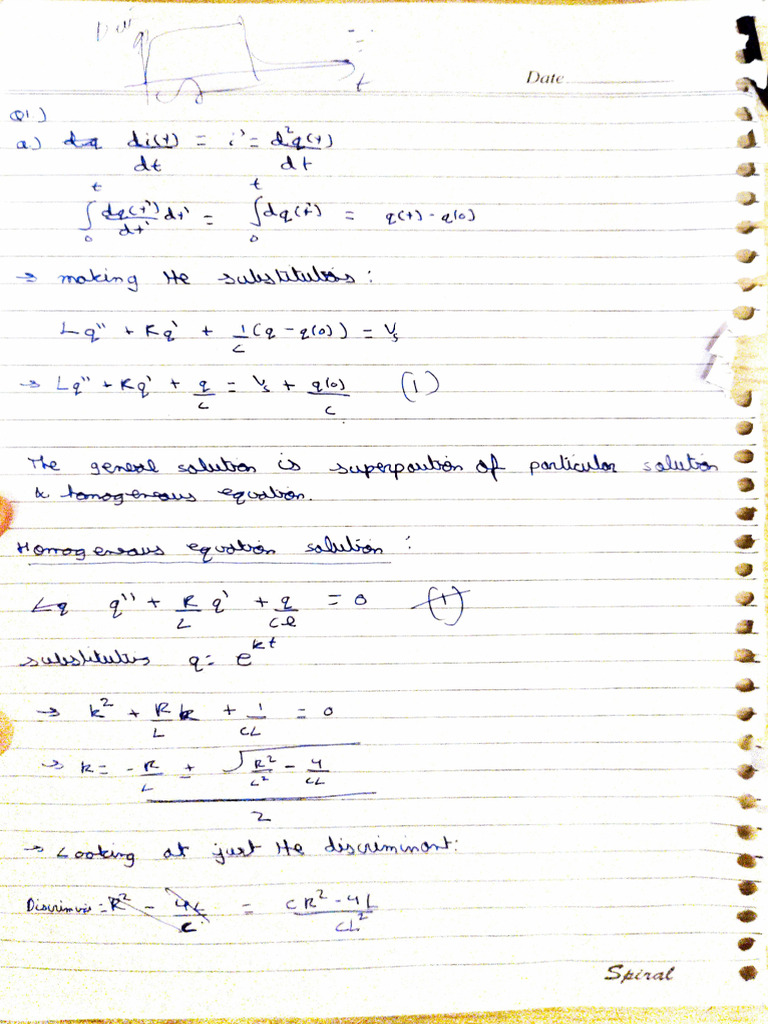 q
t
Date
Q1)
a) di(t)/dt = i' = d²q(t)/dt
∫₀ᵗ dq(t')/dt' dt' = ∫₀ᵗ dq(t') = q(t) - q(0)
→ making the substitutions:
Lq'' + Rq' + 1/C (q - q(0)) = Vs
→ Lq'' + Rq' + q/C = Vs + q(0)/C (1)
The general solution is superposition of particular solution
& homogeneous equation.
Homogeneous equation solution :
q'' + R/L q' + q/CL = 0 (1)
substitutes q = e^kt
→ k² + R/L k + 1/CL = 0
→ k = (-R/L ± √(R²/L² - 4/CL))/2
→ Looking at just the discriminant:
= R² - 4L/C = (CR² - 4L)/CL²
Spiral